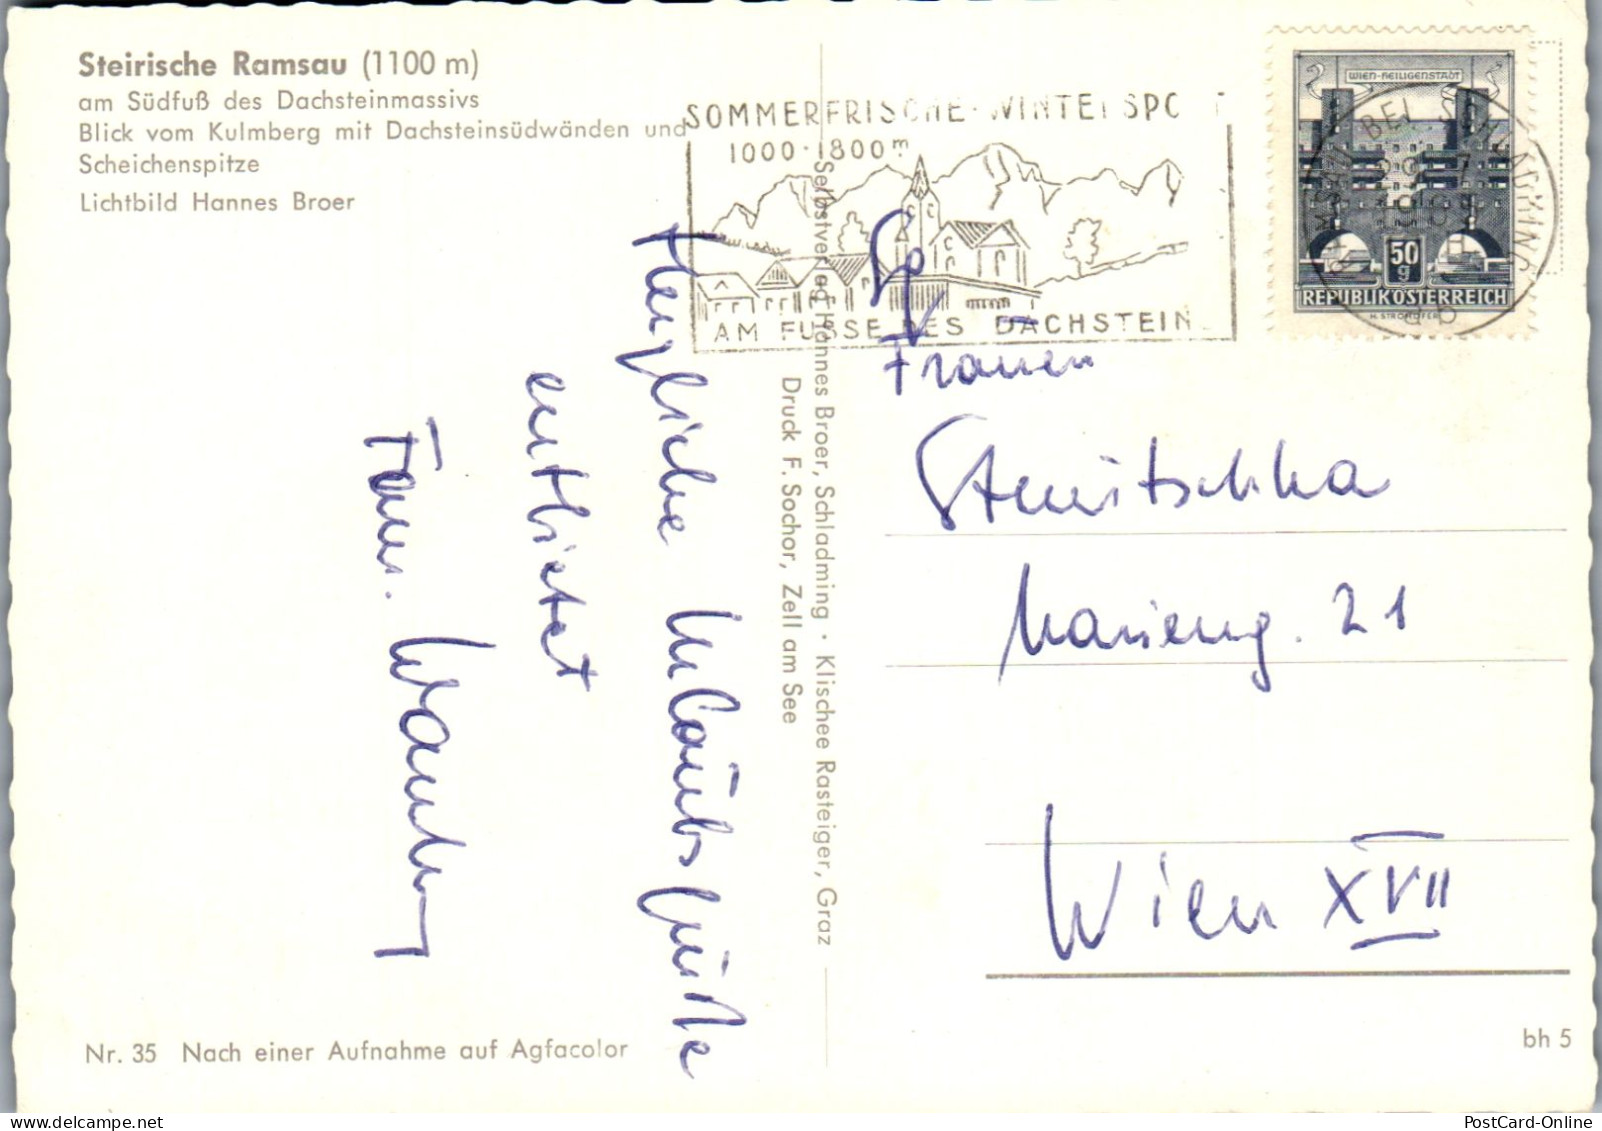 Steirische Ramsau (1100 m)
am Südfuß des Dachsteinmassivs
Blick vom Kulmberg mit Dachsteinsüdwänden und
Scheichenspitze
Lichtbild Hannes Broer
SOMMERFRISCHE-WINTERSPORT
1000-1800 m
AM FUSSE DES DACHSTEIN
WIEN-HEILIGENSTADT
50 g
REPUBLIK ÖSTERREICH
H. STROHOFER
RAMSAU BEI SCHLADMING
Selbstverlag Hannes Broer, Schladming · Klischee Rasteiger, Graz
Druck F. Sochor, Zell am See
Herzliche Urlaubsgrüße
entbietet
Fam.
Frauen
Marieng. 21
Wien XVII
Nr. 35 Nach einer Aufnahme auf Agfacolor
bh 5
PostCard-Online
www.delcampe.net